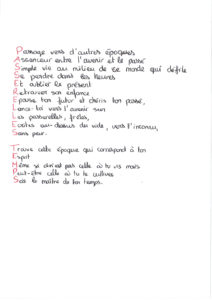 Passage vers d'autres époques
Ascenseur entre l'avenir et le passé
Simple vis au milieu de ce monde qui défile
Se perdre dans les heures
Et oublier le présent
Retrouver son enfance
Epouse ton futur et chéris ton passé,
Lance-toi vers l'avenir sur
Les passerelles, frêles,
au-dessus du vide, vers l'inconnu,
Sans peur.
Trouve cette époque qui correspond à ton
Esprit
Même si ce n'est pas celle où tu vis mais
Peut-être celle où tu te cultives
Sois le maître de ton temps.